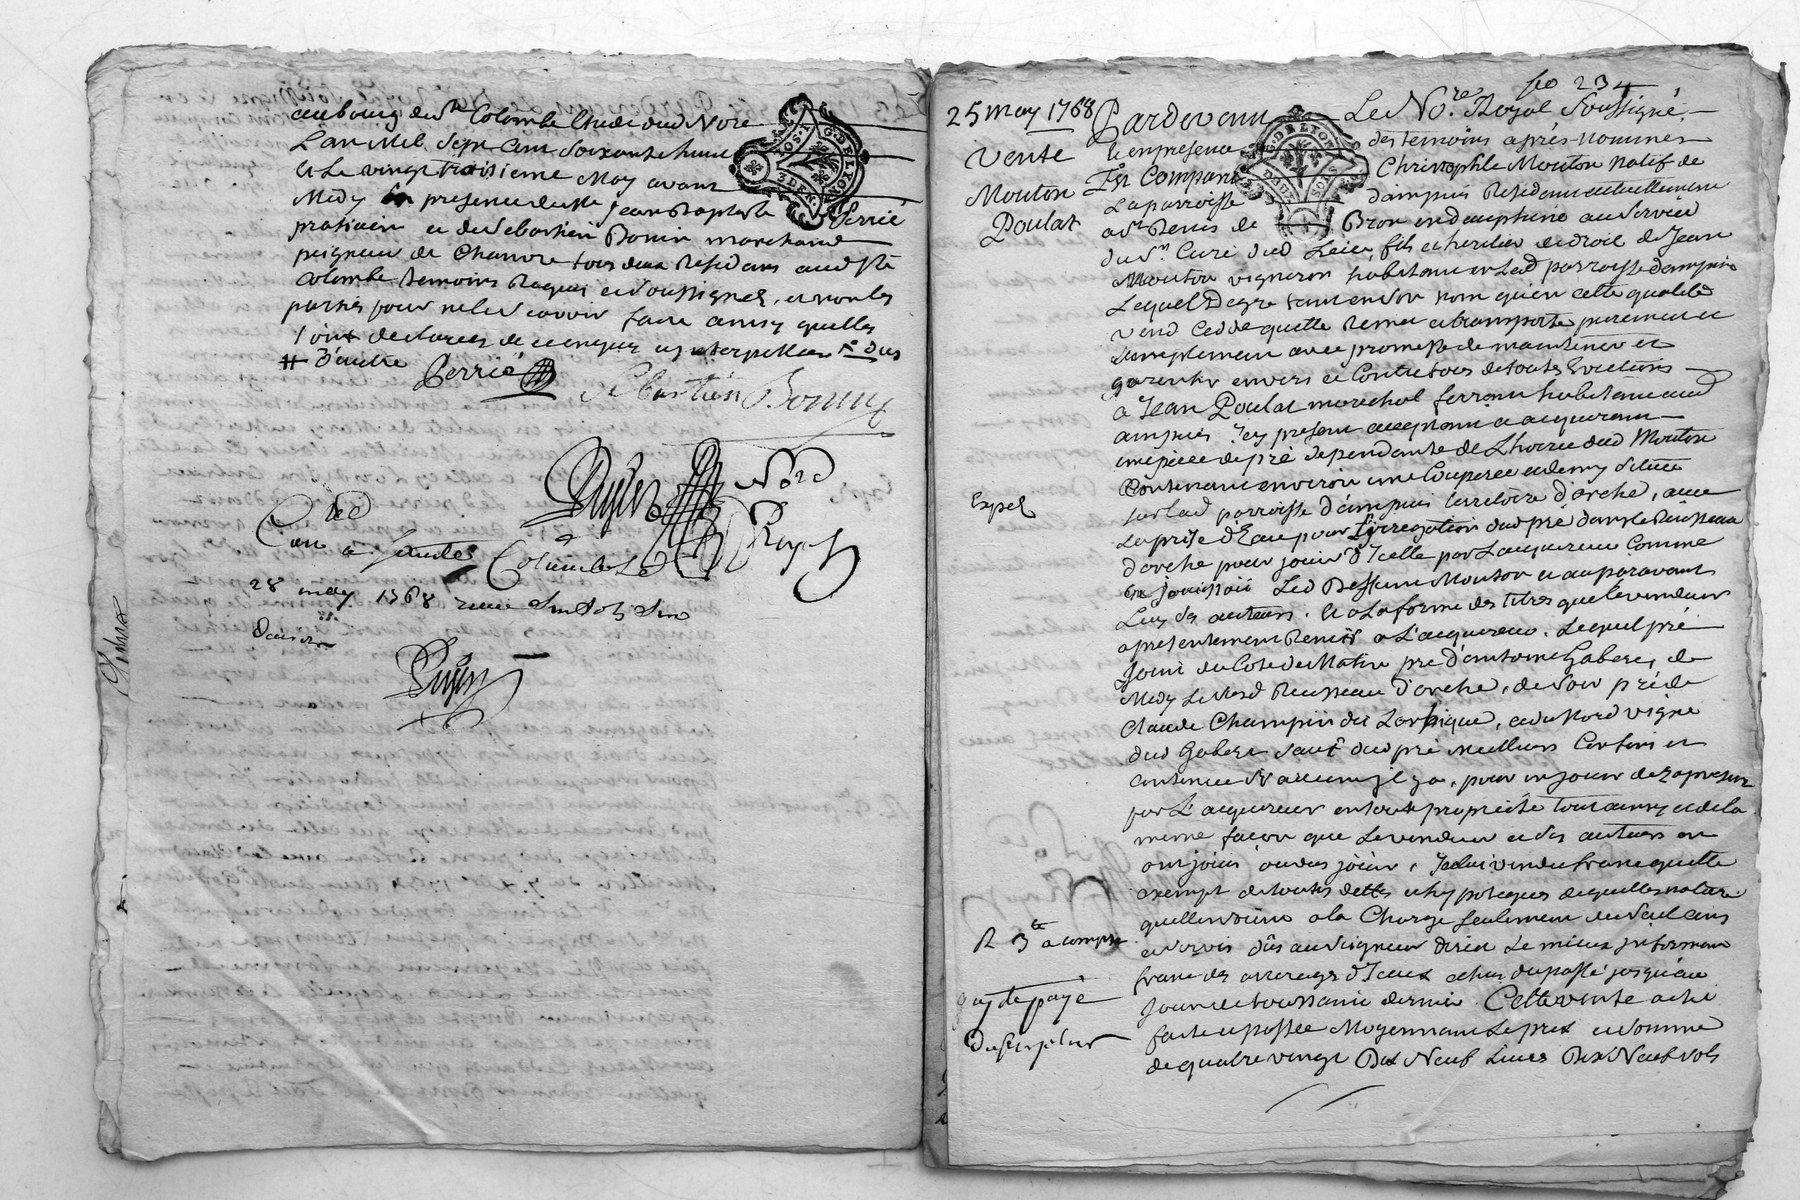 au bourg de Ste Colombe Etude dud Nore
L'an mil sept cent soixante huit
et le vingt troisieme may avant
Midy En presence de Me Jean Baptiste Perrié
praticien et de Sebastien Bonin marchand
peigneur de Chanvre tous deux Residans aud Ste
Colombe temoins Requis et soussignés, et non les
parties pour ne le scavoir faire ainsy quelles
l'ont declarées de ce enquis et interpellées
# d'autre Perrié
Sebastien Bonin
Nore
Royal
Con a Sainte Colombe le
28 may 1768 recu
Gimna
fo 234
25 may 1768
Vente
Mouton
Poulat
Pardevant Le Nore Royal Soussigné
et en presence des temoins après nommés
Est Comparu Christophle Mouton natif de
La parroisse d'ampuis Residant actuellement
a St Denis de Bron en dauphiné au service
du Sr. Curé dud Lieu, fils et heritier de droit de Jean
Mouton vigneron habitant en lad parroisse d'ampuis
Lequel De gre tant en son nom qu'en cette qualité
vend cedde quitte Remet et transporte purement et
simplement avec promesse de maintenir et
garentir envers et Contre tous de toutes Evictions
à Jean Poulat marechal ferrant habitant aud
ampuis icy present acceptant et acquerant
une piece de pré dependante de L'hoirie dud Mouton
Contenant environ une Couperée et demy située
Exped
sur lad parroisse d'ampuis territoire d'orche, avec
La prise d'Eau pour L'irregation dud pré dans le Ruisseau
d'orche pour jouir d'Icelle par L'acquereur Comme
en jouissoit Led Deffunt Mouton et auparavant
Luy ses auteurs. et a La forme des titres que le vendeur
a presentement Remis a L'acquereur. Lequel pré
Joint du Coté de Matin pré d'antoine Gabere, de
Midy Le Nord Ruisseau d'orche, de soir pré de
Claude Champin dit Larbique, et de Nord vigne
dud Gabere sauf dud pré meilleurs Confins et
contenue S'il aucun il y a, pour en jouir dez a present
par L'acquereur en toute proprieté tout ainsy et de la
meme façon que Le vendeur et ses auteurs en
ont jouis ou dus jouir, Icelui vendu franc quitte
exempt de toutes dettes et hypoteques de quelle nature
quelle soient a la Charge seulement de seul cens
R 3te a compte
et servis dûs au Seigneur direct Le mieux informant
franc des arrerages d'Iceux echus du passé jusqu'au
quitte payé
Jour de toussaint dernier. Cette vente a eté
du surplus
faite et passée Moyennant Le prix et somme
de quatre vingt Dix Neuf Livres Dix Neuf sols